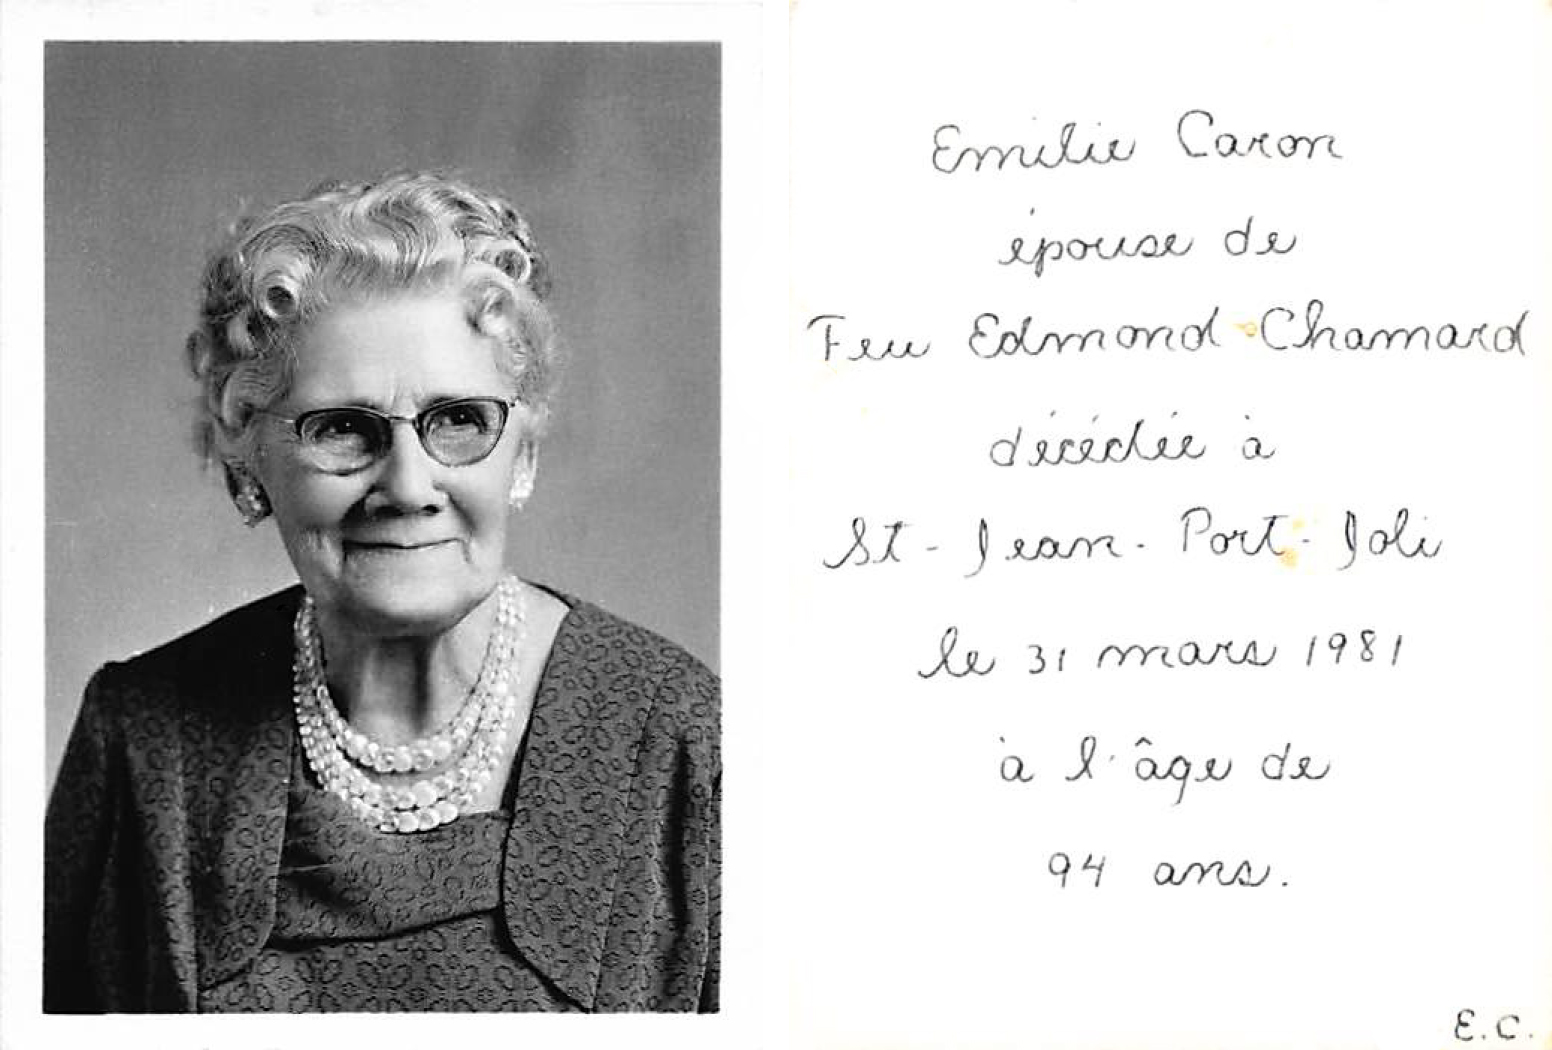 Emilie Caron
épouse de
Feu Edmond Chamard
décédée à
St-Jean-Port-Joli
le 31 mars 1981
à l'âge de
94 ans.
E.C.